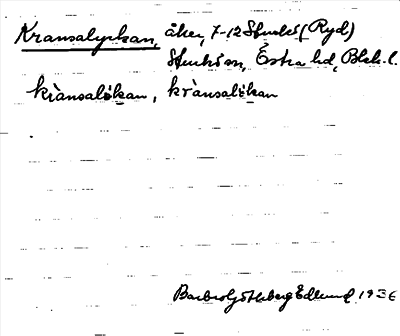 Kransalyckan, åker, 7-12 Stensko (Ryd)
Stenkösn, Östra hd, Blek. l.
krànsalökan, krànsalökan
Barbro Göthberg Edlund 1936